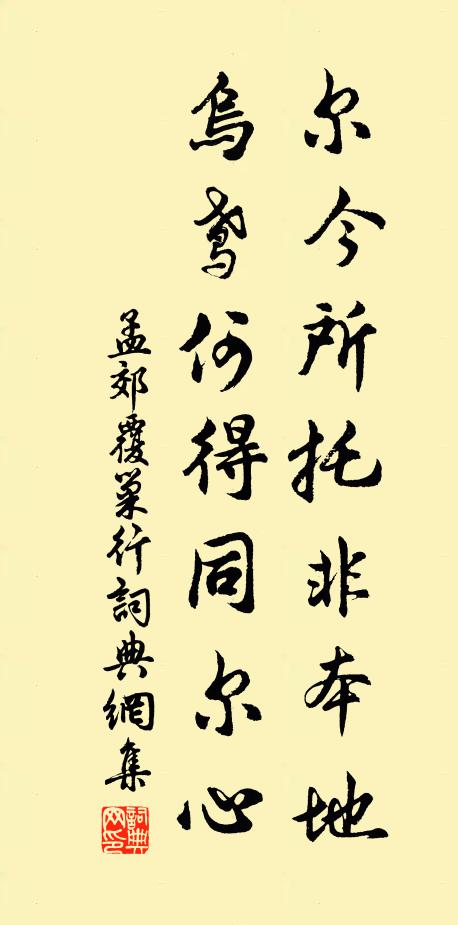 尔今所托非本地
乌鸢何得同尔心
孟郊覆巢行詞典網集
詞典网印